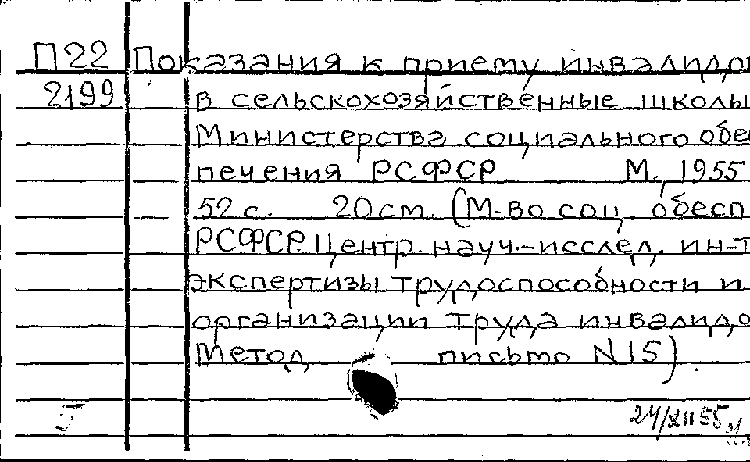 П22 Показания к приему инвалидо
2199 в сельскохозяйственные школы
Министерства социального обес
печения РСФСР М., 1955
52 с. 20 см. (М-во соц. обесп
РСФСР. Центр. науч.-исслед. ин-т
экспертизы трудоспособности и
организации труда инвалидо
Метод письмо N 15).
24/XII 55